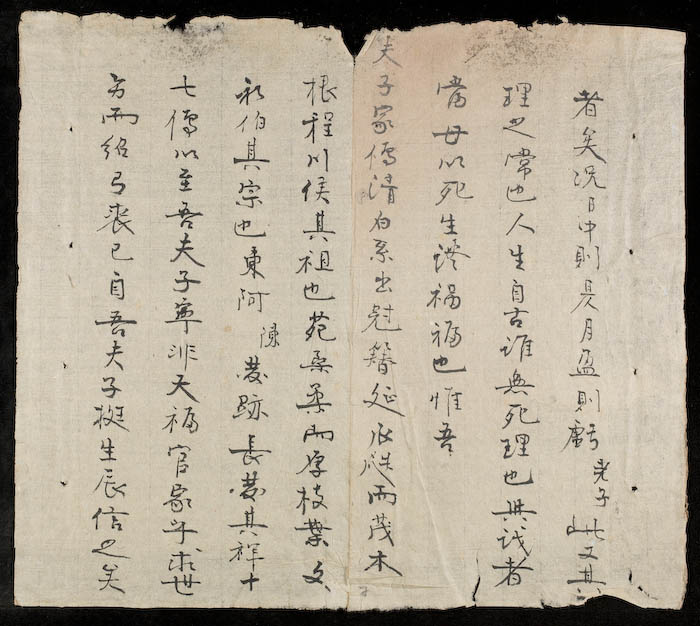 者矣况日中則昃月盈則虧老子此又其
理之常也人生自古誰無死理也與哉者
當毋以死生證禍福也惟吾
夫子家傳清白系出冠簪延水而茂木
根程川侯其祖也苑桑柔而厚枝葉文
永伯其宗也東阿陳發跡長發其祥十
七傳以至吾夫子寧非天福官家乎求世
方而紹弓裘已自吾夫子挺生辰信之矣